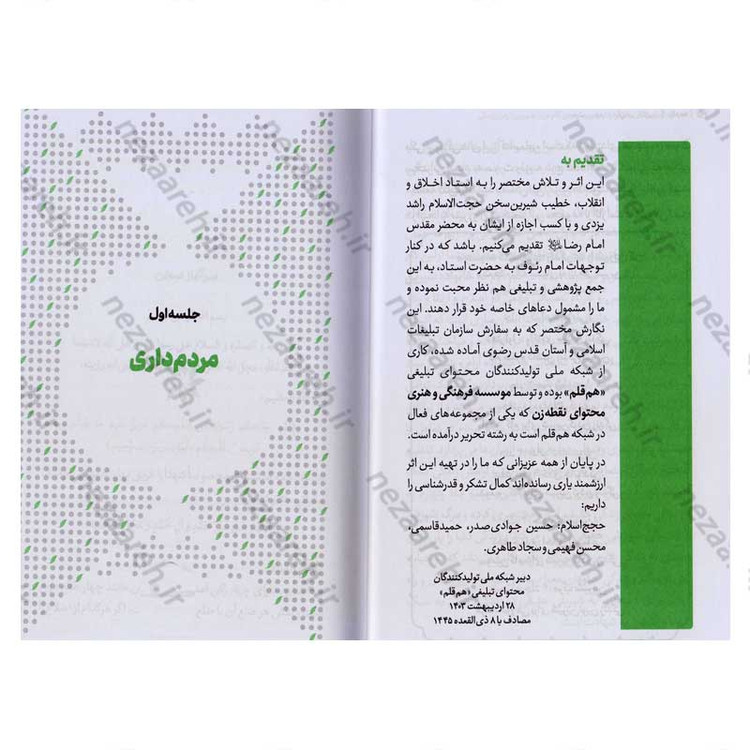 تقدیم به
این اثر و تلاش مختصر را به استاد اخلاق و
انقلاب، خطیب شیرین‌سخن حجت‌الاسلام راشد
یزدی و با کسب اجازه از ایشان به محضر مقدس
امام رضا تقدیم می‌کنیم. باشد که در کنار
توجهات امام رئوف به حضرت استاد، به این
جمع پژوهشی و تبلیغی هم نظر محبت نموده و
ما را مشمول دعاهای خاصه خود قرار دهند. این
نگارش مختصر که به سفارش سازمان تبلیغات
اسلامی و آستان قدس رضوی آماده شده، کاری
از شبکه ملی تولیدکنندگان محتوای تبلیغی
«هم‌قلم» بوده و توسط موسسه فرهنگی و هنری
محتوای نقطه‌زن که یکی از مجموعه‌های فعال
در شبکه هم‌قلم است به رشته تحریر درآمده است.
در پایان از همه عزیزانی که ما را در تهیه این اثر
ارزشمند یاری رسانده‌اند کمال تشکر و قدرشناسی را
داریم:
حجج‌اسلام: حسین جوادی‌صدر، حمید‌قاسمی،
محسن فهیمی و سجاد طاهری.
دبیر شبکه ملی تولیدکنندگان
محتوای تبلیغی «هم‌قلم»
۲۸ اردیبهشت ۱۴۰۳
مصادف با ۸ ذی‌القعده ۱۴۴۵
جلسه اول
مردم‌داری
nezaareh.ir